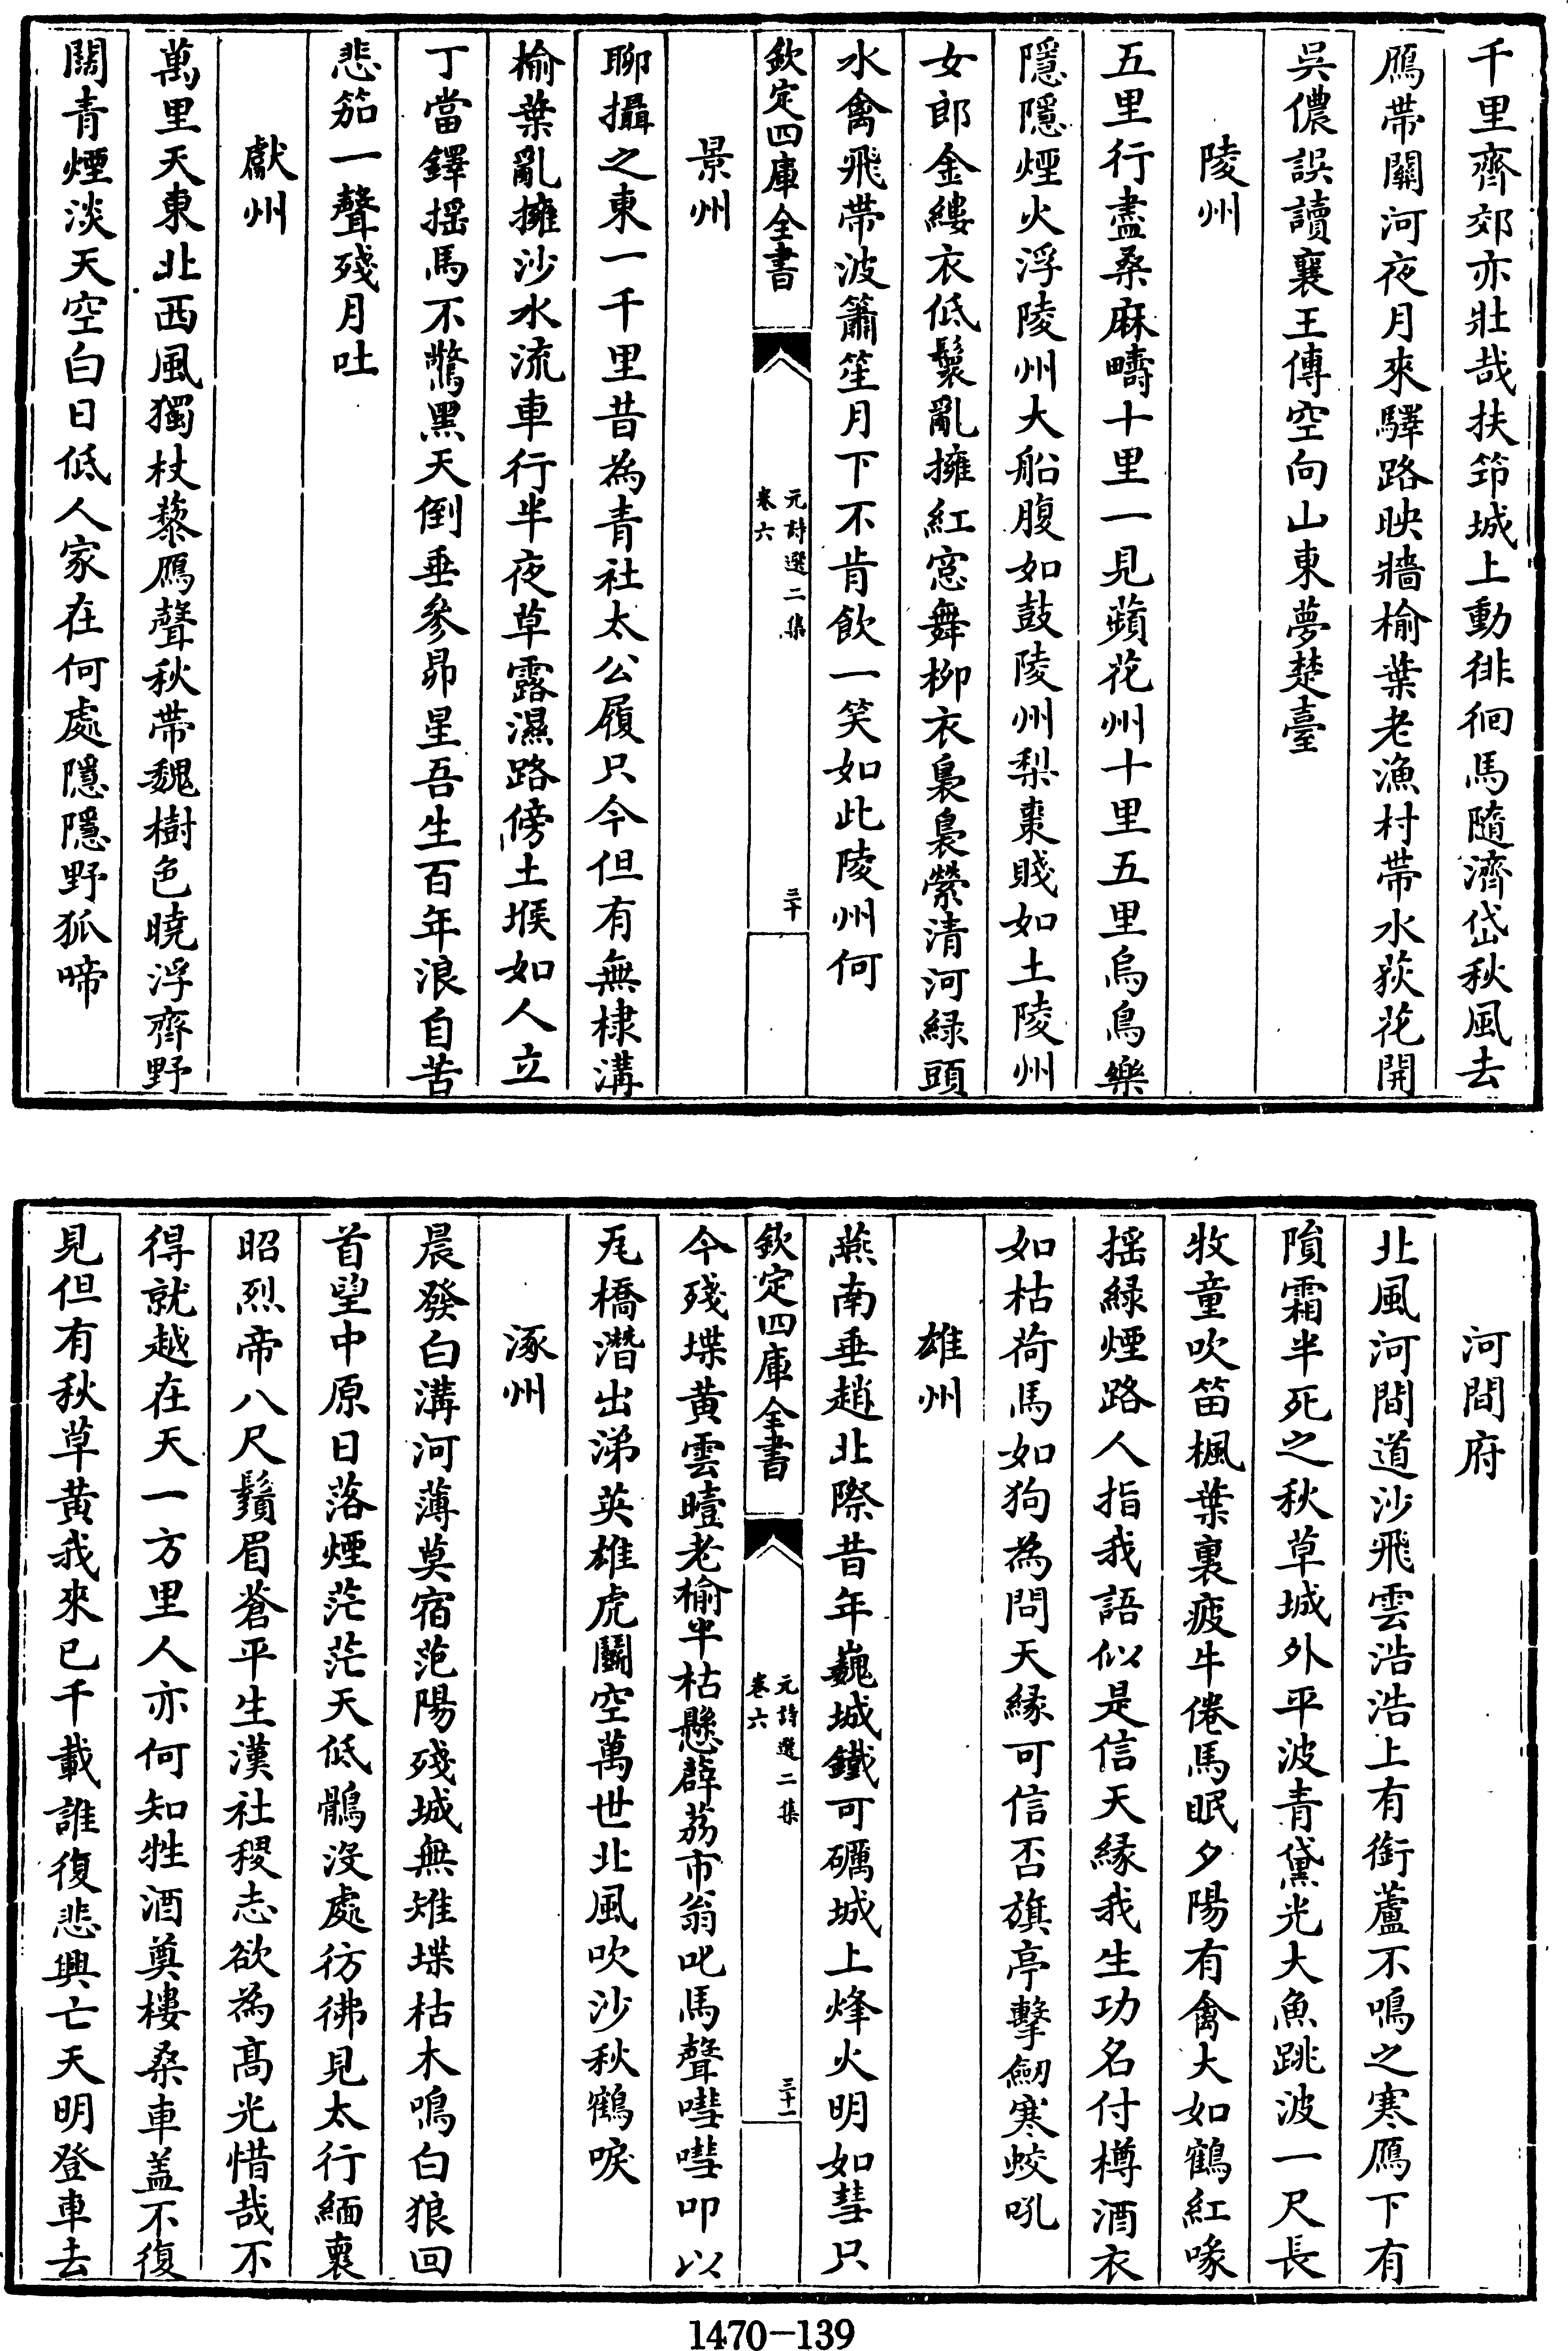 千里齊郊亦壯哉扶筇城上動徘徊馬隨濟岱秋風去
鴈帶關河夜月來驛路映牆榆葉老漁村帶水荻花開
吳儂誤讀襄王傳空向山東夢楚臺
陵州
五里行盡桑麻疇十里一見蘋花州十里五里烏鳥樂
隱隱煙火浮陵州大船腹如鼓陵州梨棗賤如土陵州
女郎金縷衣低鬟亂擁紅窓舞柳衣裊裊縈清河緑頭
水禽飛帶波簫笙月下不肯飲一笑如此陵州何
欽定四庫全書
元詩選二集
卷六
三十
景州
聊攝之東一千里昔為青社太公履只今但有無棣溝
榆葉亂擁沙水流車行半夜草露濕路傍土堠如人立
丁當鐸揺馬不驚黑天倒垂參昴星吾生百年浪自苦
悲笳一聲殘月吐
獻州
萬里天東北西風獨杖藜鴈聲秋帶魏樹色曉浮齊野
闊青煙淡天空白日低人家在何處隱隱野狐啼
河間府
北風河間道沙飛雲浩浩上有銜蘆不鳴之寒鴈下有
隕霜半死之秋草城外平波青黛光大魚跳波一尺長
牧童吹笛楓葉裏疲牛倦馬眠夕陽有禽大如鶴紅喙
揺緑煙路人指我語似是信天縁我生功名付樽酒衣
如枯荷馬如狗為問天縁可信否旗亭擊劒寒蛟吼
雄州
燕南垂趙北際昔年巍城鐵可礪城上烽火明如彗只
欽定四庫全書
元詩選二集
卷六
三十一
今殘堞黃雲曀老榆半枯懸薜荔市翁叱馬聲嘒嘒叩以
瓦橋潛出涕英雄虎鬬空萬世北風吹沙秋鶴唳
涿州
晨發白溝河薄莫宿范陽殘城無雉堞枯木鳴白狼回
首望中原日落煙茫茫天低鶻沒處彷彿見太行緬褱
昭烈帝八尺鬚眉蒼平生漢社稷志欲為髙光惜哉不
得就越在天一方里人亦何知牲酒奠樓桑車盖不復
見但有秋草黃我來已千載誰復悲興亡天明登車去
1470-139